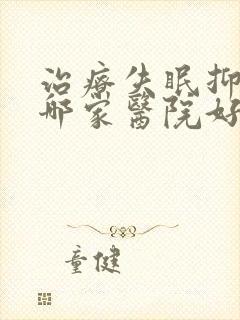 治療失眠抑
哪家醫院好
童健